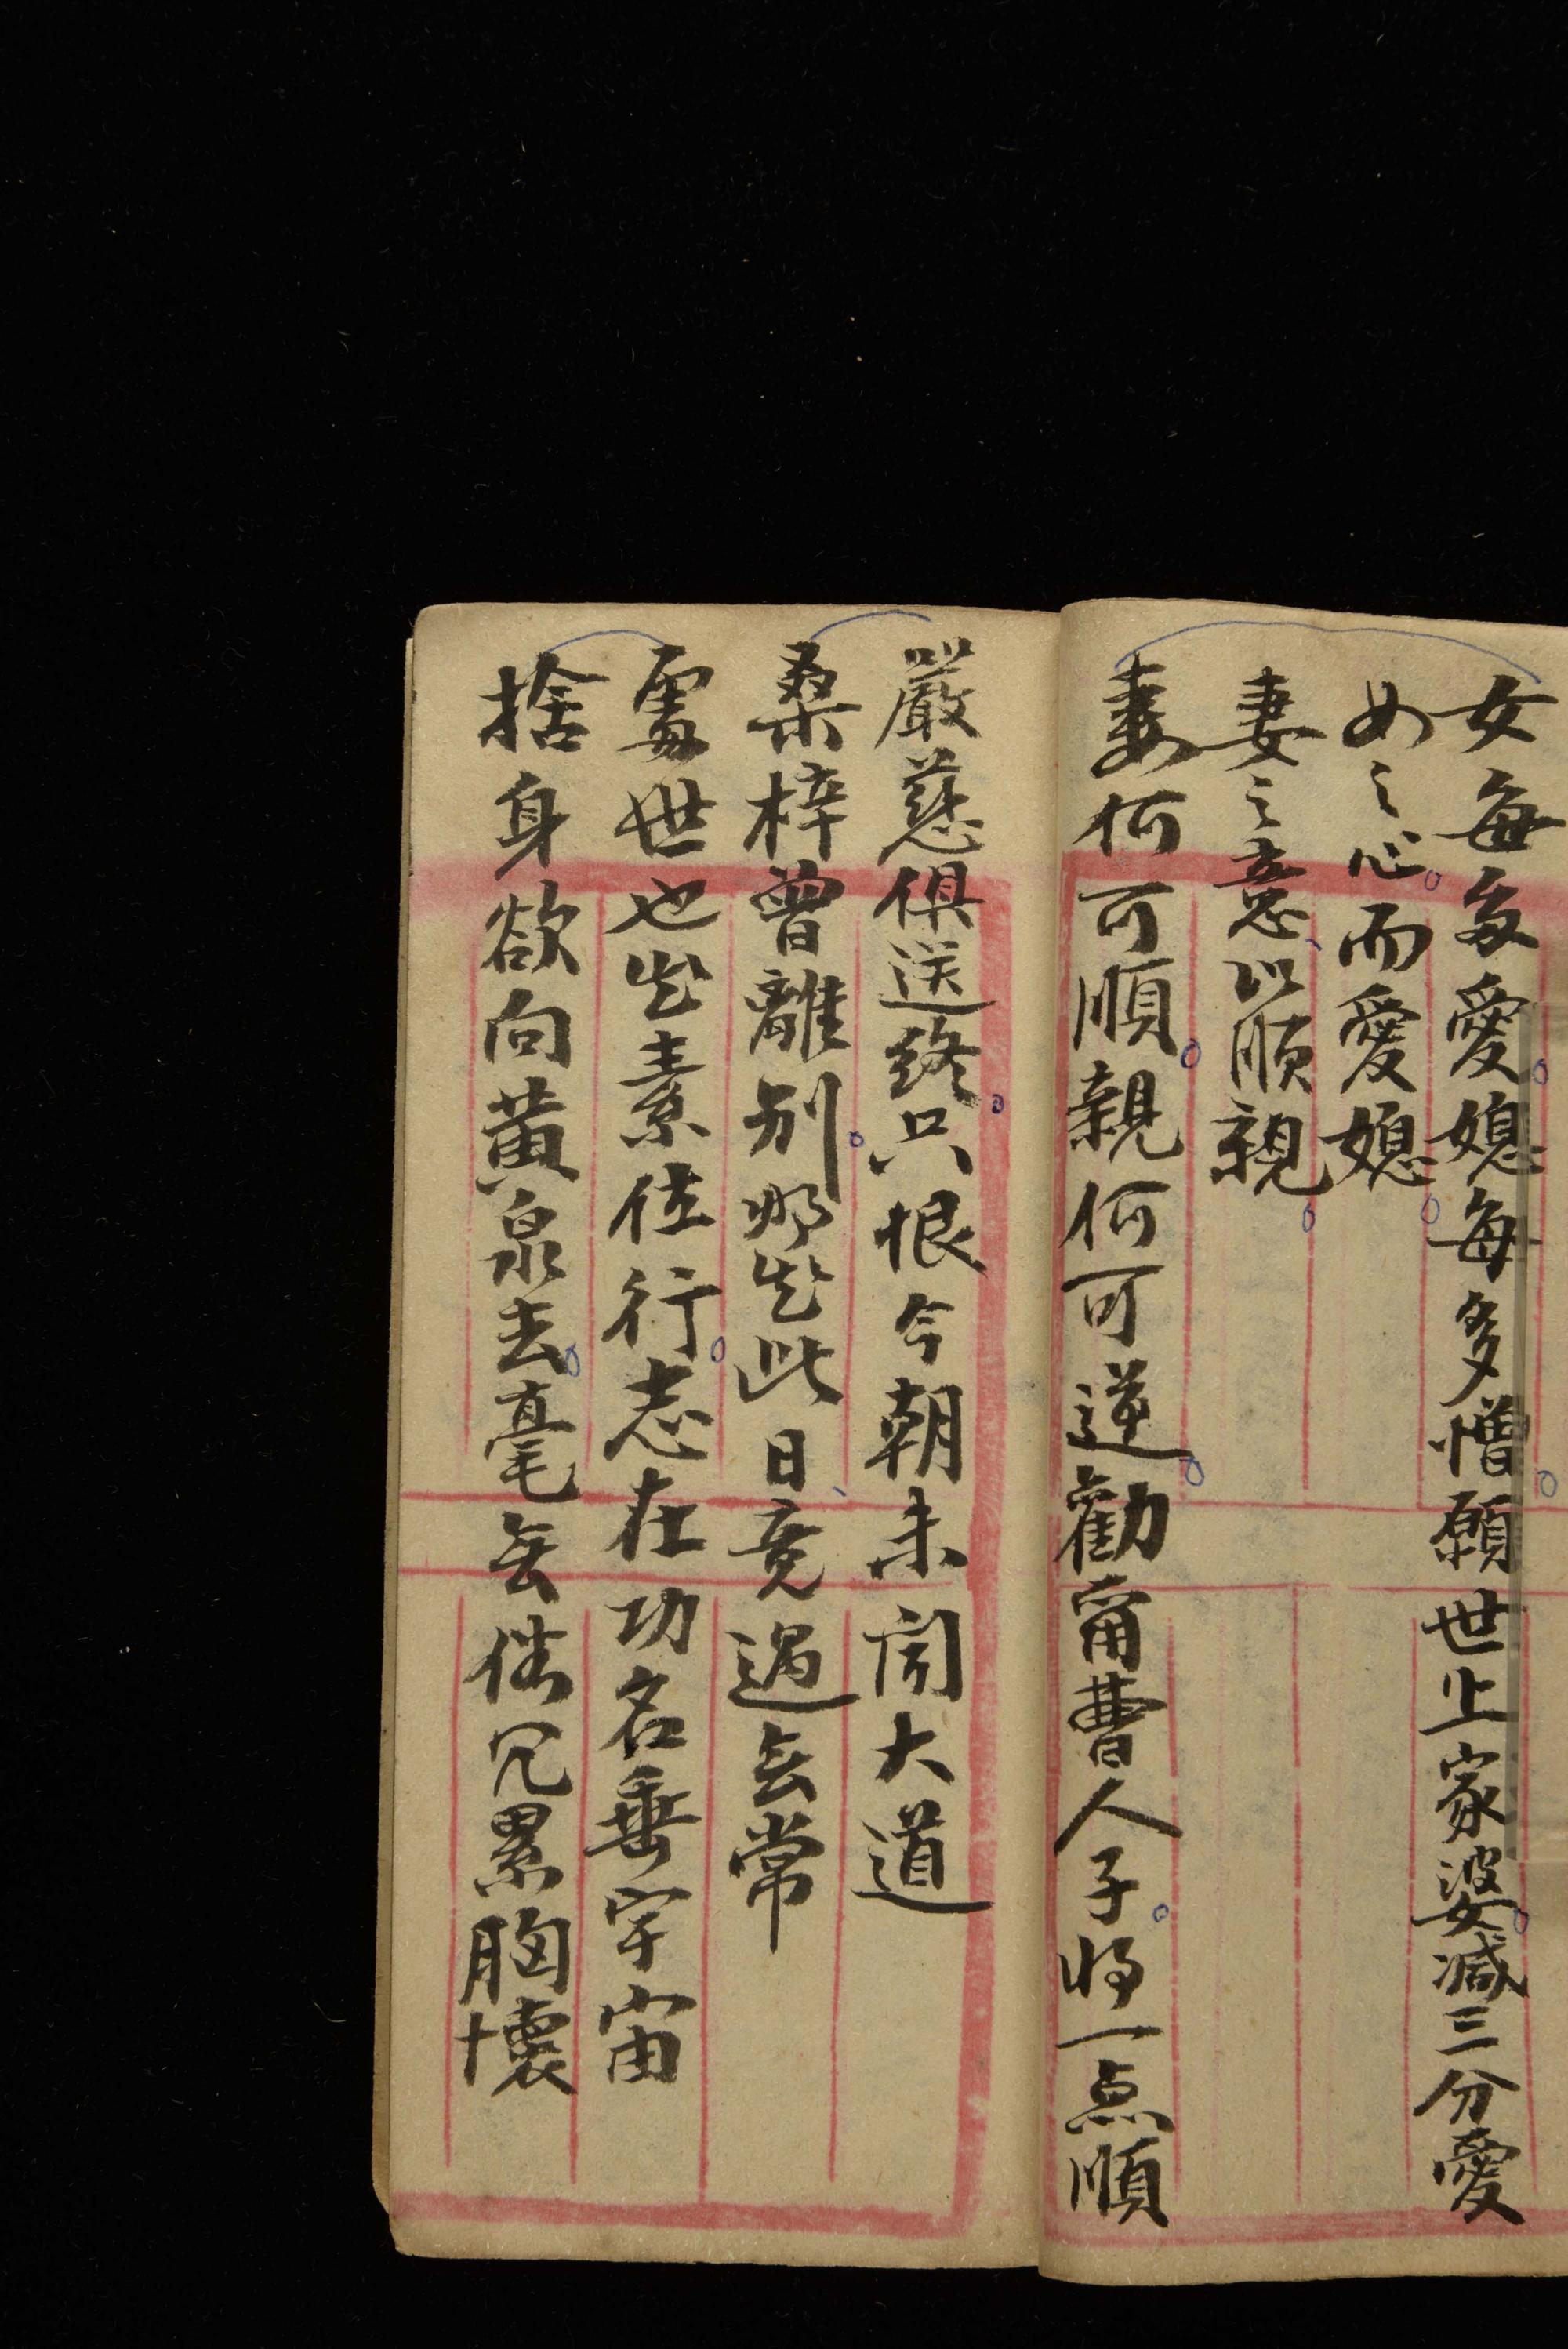 女每多愛媳每多憎願世上家婆減三分愛
女之心而愛媳
妻何可順親何可逆勸甭曹人子將一点順
妻之意以順親
嚴慈俱送終只恨今朝未闻大道
桑梓曾離别那些此日竟遇无常
處世也些素位行志在功名垂宇宙
捨身欲向黄泉去毫无俗冗累胸懷